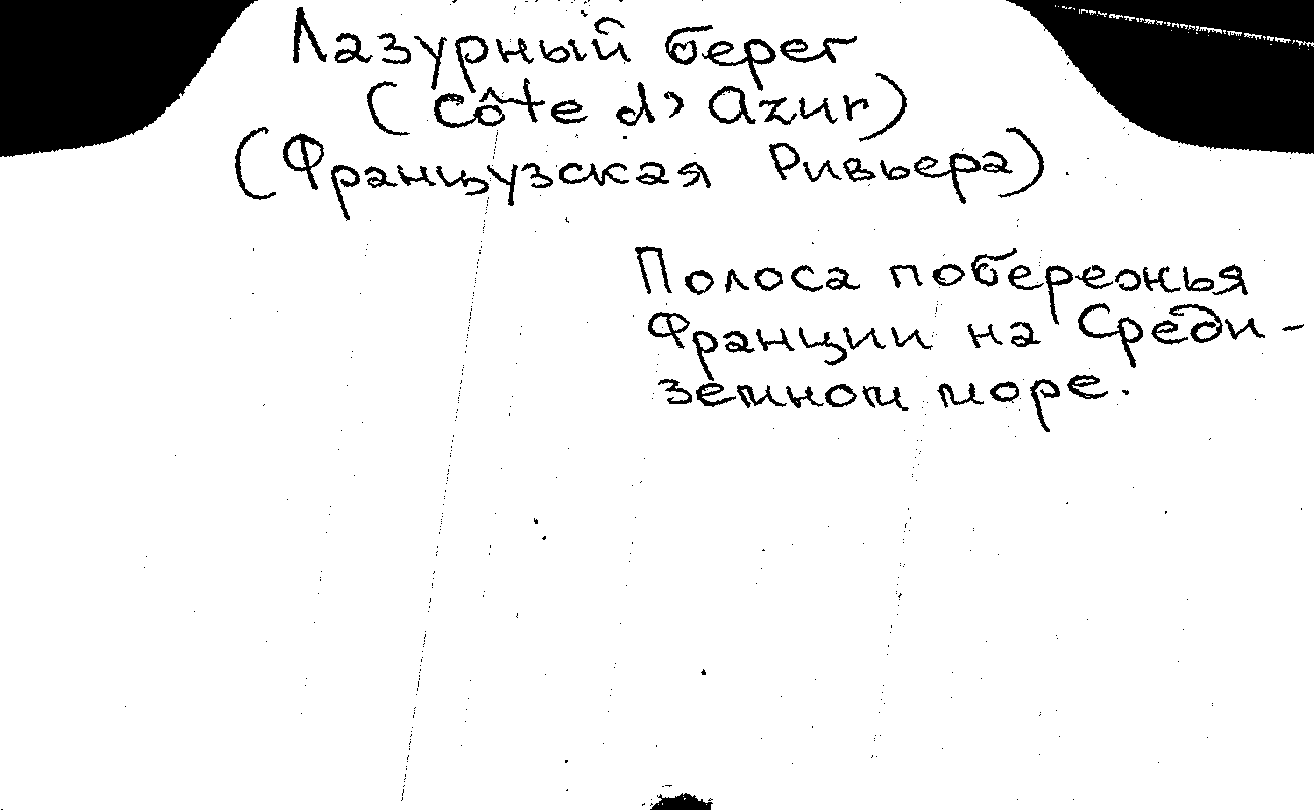 Лазурный берег
(Côte d'Azur)
(Французская Ривьера)
Полоса побережья
Франции на Среди-
земном море.